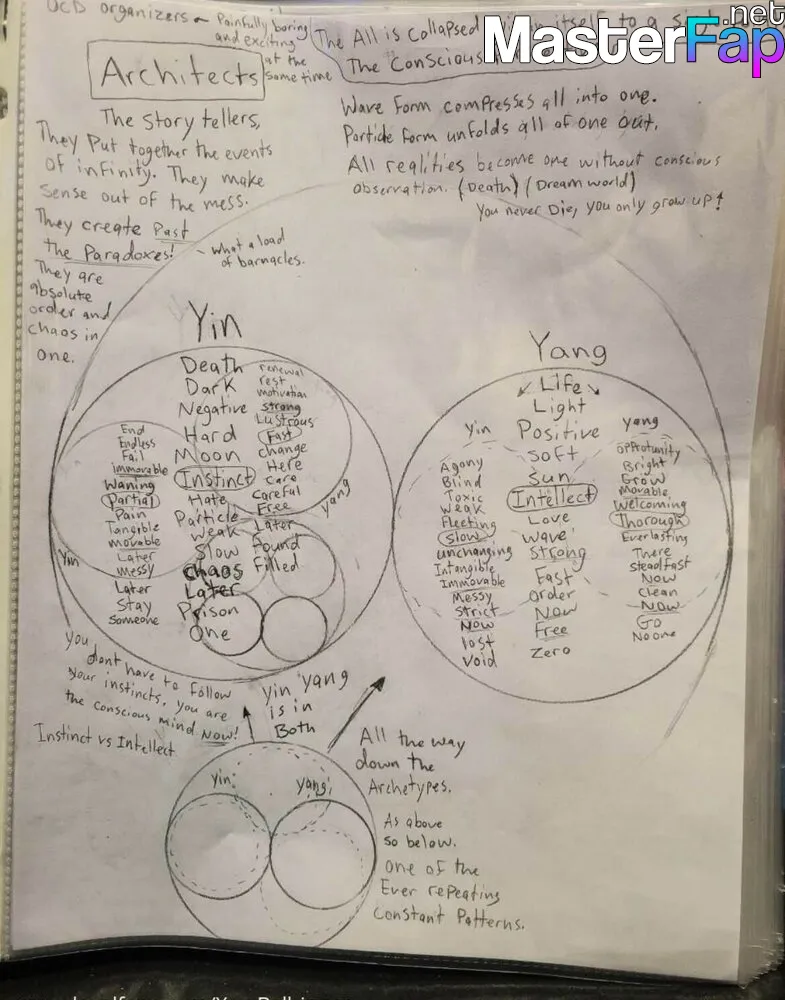 OCD organizers
Painfully boring
and exciting
at the
same time
Architects
The All is collapsed itself to a
The Conscious
MasterFap
.net
The story tellers,
They put together the events
of infinity. They make
sense out of the mess.
They create Past
the Paradoxes!
They are
absolute
order and
chaos in
one.
what a load
of barnacles.
Wave form compresses all into one.
Particle form unfolds all of one out.
All realities become one without conscious
observation. (Death) (Dream world)
You never Die, you only grow up!
Yin
Death
Dark
Negative
Hard
Moon
Instinct
Hate
Particle
Weak
Slow
Chaos
Later
Prison
One
renewal
rest
motivation
strong
Lustrous
Fast
change
Here
care
careful
Free
Later
Found
Filled
yang
End
Endless
Fail
immovable
Waning
Partial
Pain
Tangible
movable
Later
messy
Later
Stay
Someone
Yin
Yang
Life
Light
Positive
Soft
Sun
Intellect
Love
Wave
Strong
Fast
Order
Now
Free
Zero
Yin
Agony
Blind
Toxic
weak
Fleeting
slow
unchanging
Intangible
Immovable
Messy
Strict
Now
lost
Void
yang
opprotunity
Bright
Grow
movable
Welcoming
Thorough
Everlasting
There
steadfast
Now
Clean
Now
Go
No one
you
dont have to follow
your instincts, you are
the conscious mind NOW!
Instinct vs Intellect
yin yang
is in
Both
yin
yang
All the way
down the
Archetypes.
As above
so below.
one of the
Ever repeating
Constant Patterns.